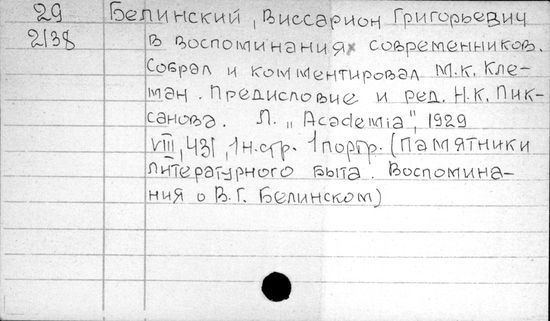 29 Белинский, Виссарион Григорьевич
2138 в воспоминаниях современников.
Собрал и комментировал М.К. Кле-
ман. Предисловие и ред. Н.К. Пик-
санова. Л. „Academia", 1929
VIII, 431, 1 н.стр. 1 портр. (Памятники
литературного быта. Воспомина-
ния о В.Г. Белинском)